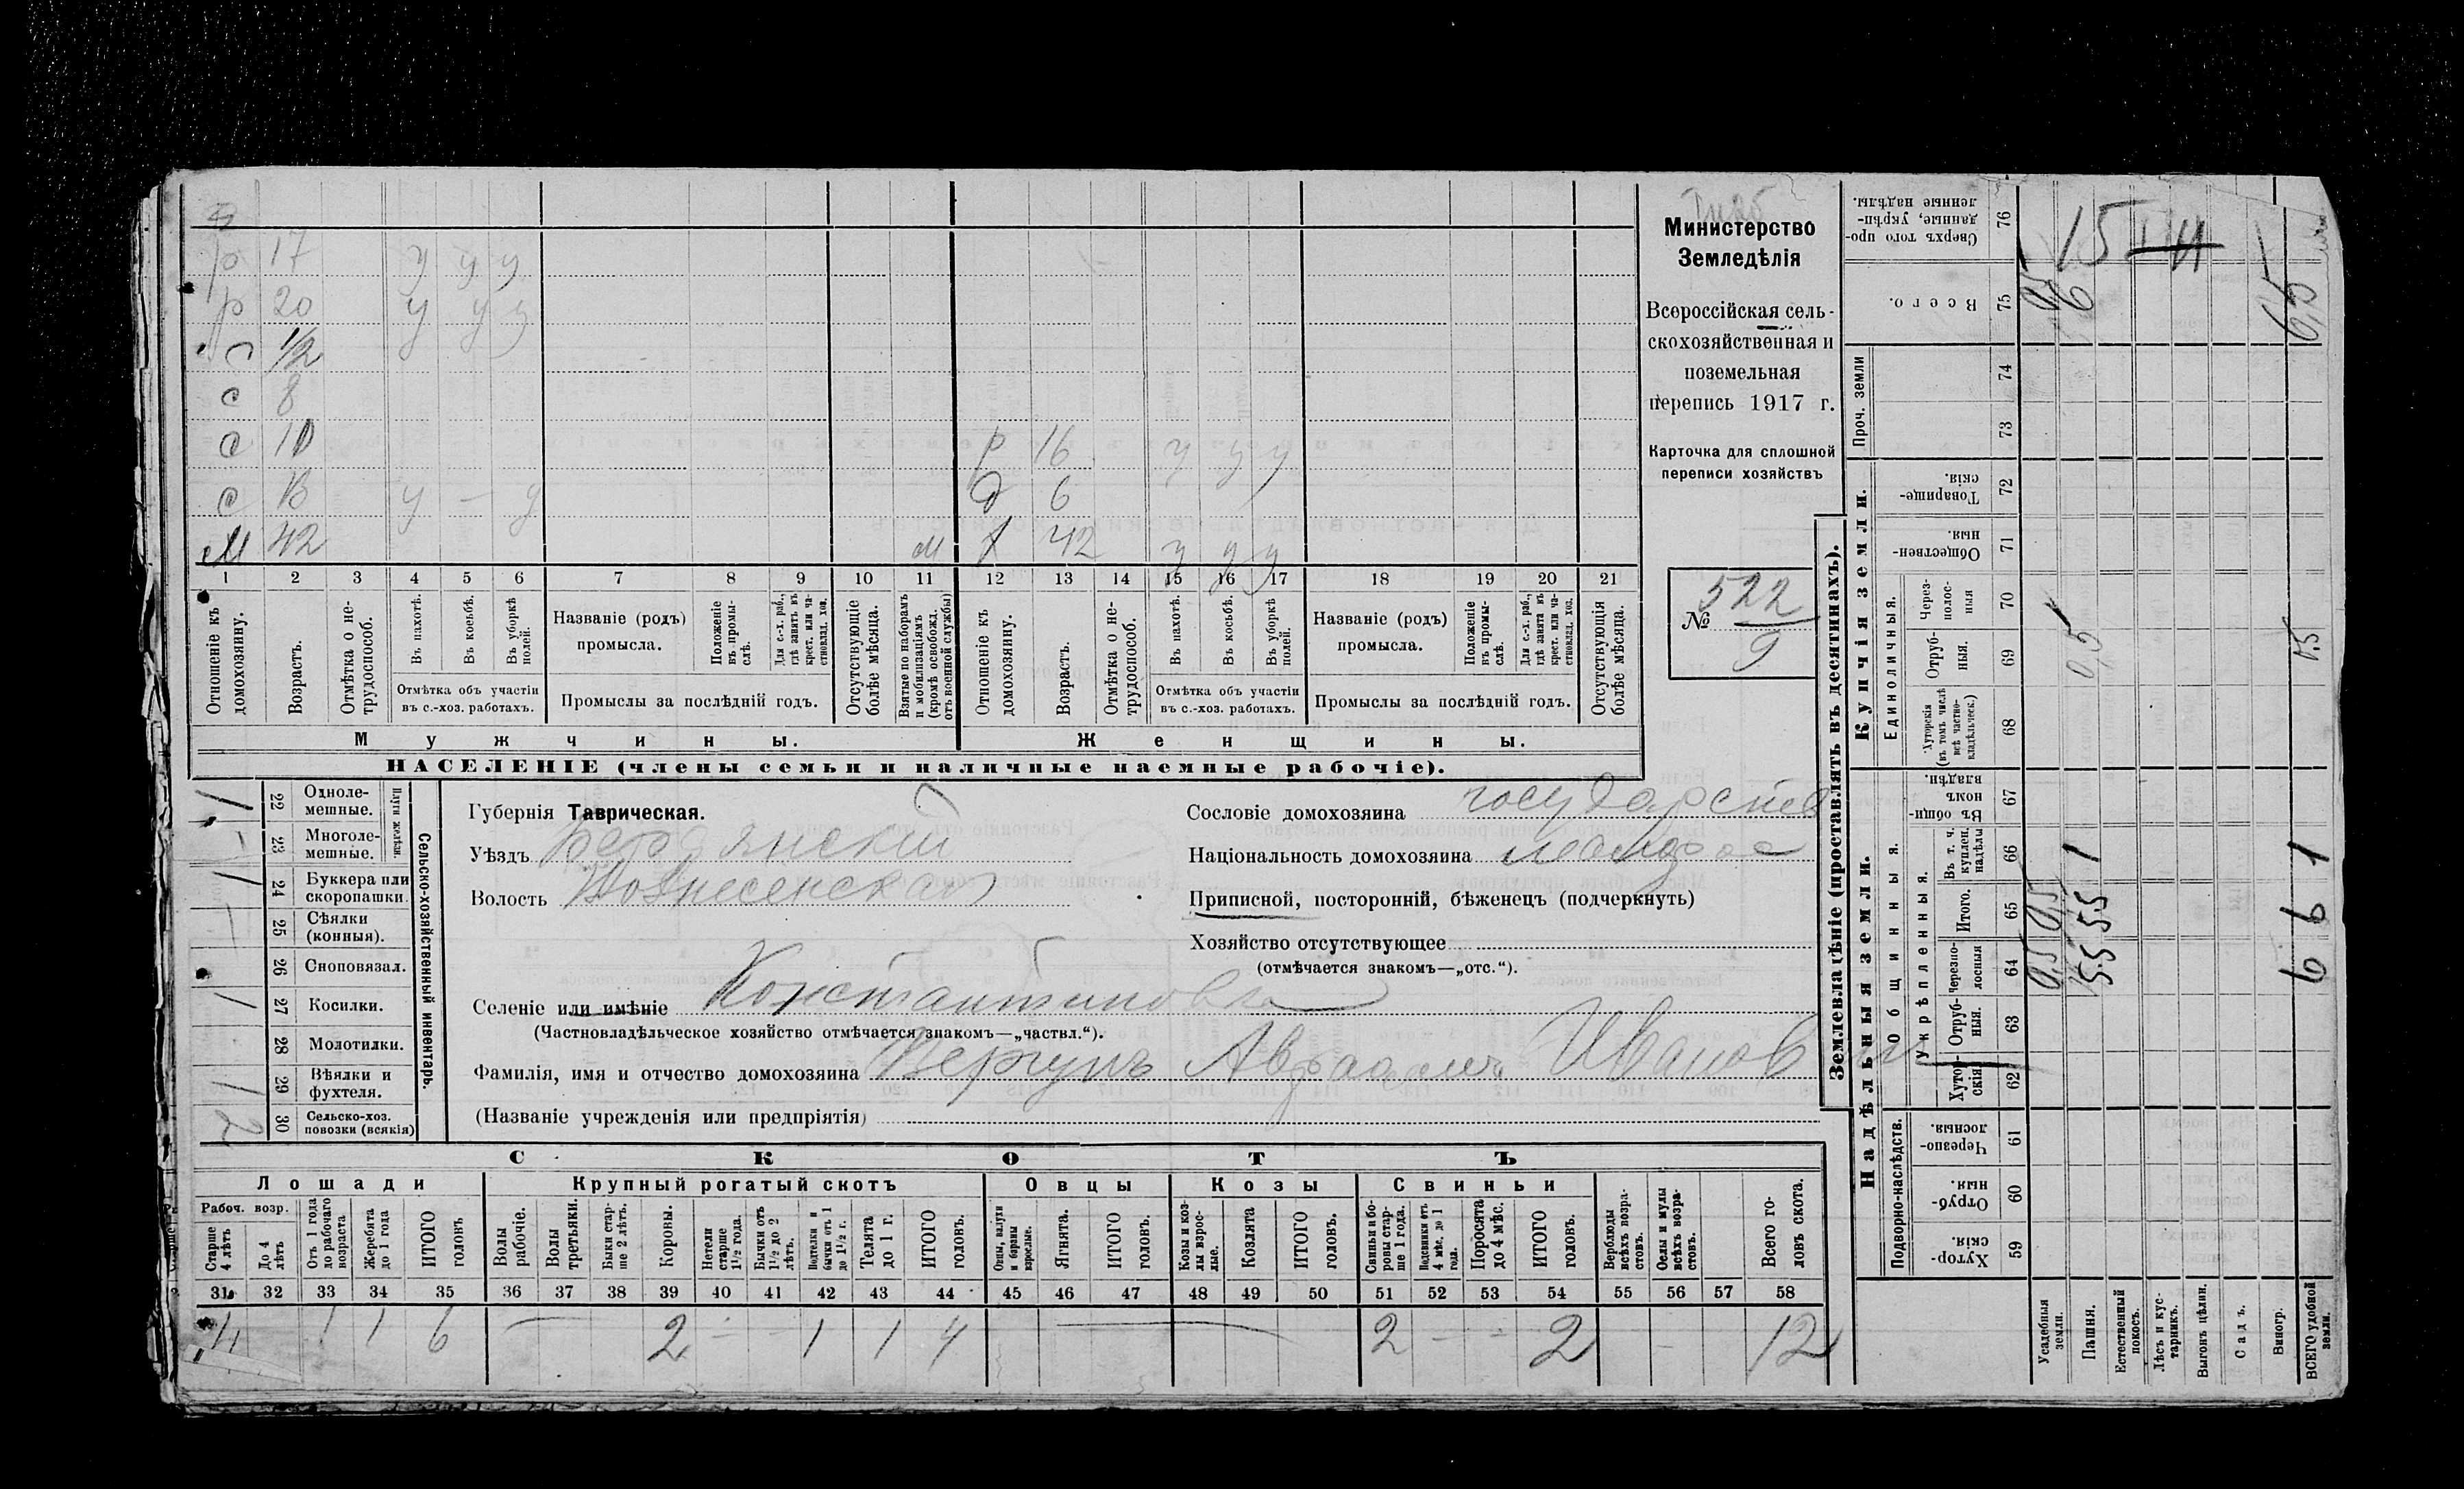 р 17 у у у
р 20 у у у
с 1/2
с 8
с 10 р 16 у у у
с 13 у — у д 6
М 42 м 42 у у у
1 2 3 4 5 6 7 8 9 10 11 12 13 14 15 16 17 18 19 20 21
Отношеніе къ домохозяину.
Возрастъ.
Отмѣтка о не-трудоспособ.
Въ пахотѣ.
Въ косьбѣ.
Въ уборкѣ полей.
Отмѣтка объ участіи
въ с.-хоз. работахъ.
Названіе (родъ)
промысла.
Положеніе въ промы-слѣ.
Для с.-х. раб., гдѣ занятъ въ крест. или ча-стновлад. хоз.
Промыслы за послѣдній годъ.
Отсутствующіе болѣе мѣсяца.
Взятые по наборамъ и мобилизаціямъ (кромѣ освобожд. отъ военной службы)
Отношеніе къ домохозяину.
Возрастъ.
Отмѣтка о не-трудоспособ.
Въ пахотѣ.
Въ косьбѣ.
Въ уборкѣ полей.
Отмѣтка объ участіи
въ с.-хоз. работахъ.
Названіе (родъ)
промысла.
Положеніе въ промы-слѣ.
Для с.-х. раб., гдѣ занята въ крест. или ча-стновлад. хоз.
Промыслы за послѣдній годъ.
Отсутствующія болѣе мѣсяца.
Мужчины. Женщины.
НАСЕЛЕНІЕ (члены семьи и наличные наемные рабочіе).
Министерство
Земледѣлія
Всероссійская сель-
скохозяйственная и
поземельная
перепись 1917 г.
Карточка для сплошной
переписи хозяйствъ
№ 522
9
Сельско-хозяйственный инвентарь.
Плуги желѣзн.
1 22 Одноле-мешные.
— 23 Многоле-мешные.
1 24 Буккера или скоропашки.
— 25 Сѣялки (конныя).
26 Сноповязал.
1 27 Косилки.
28 Молотилки.
1 29 Вѣялки и фухтеля.
2 30 Сельско-хоз. повозки (всякія)
Губернія Таврическая.
Уѣздъ Бердянскій
Волость Вознесенская
Селеніе или имѣніе Константиновка
(Частновладѣльческое хозяйство отмѣчается знакомъ—„частвл.“).
Фамилія, имя и отчество домохозяина Вергунъ Авраамъ Иванов
(Названіе учрежденія или предпріятія)
Сословіе домохозяина государств
Національность домохозяина малорос
Приписной, посторонній, бѣженецъ (подчеркнуть)
Хозяйство отсутствующее
(отмѣчается знакомъ—„отс.“).
СКОТЪ
Лошади Крупный рогатый скотъ Овцы Козы Свиньи
Рабоч. возр.
Старше 4 лѣтъ
До 4 лѣтъ
Отъ 1 года до рабочаго возраста
Жеребята до 1 года
ИТОГО головъ
Волы рабочіе.
Волы третьяки.
Быки стар-ше 2 лѣтъ.
Коровы.
Нетели старше 1½ года.
Бычки отъ 1½ до 2 лѣтъ.
Подтелки и бычки отъ 1 до 1½ г.
Телята до 1 г.
ИТОГО головъ.
Овцы, валухи и бараны взрослые.
Ягнята.
ИТОГО головъ.
Козы и коз-лы взрос-лые.
Козлята
ИТОГО головъ.
Свиньи и бо-ровы стар-ше 1 года.
Подсвинки отъ 4 мѣс. до 1 года.
Поросята до 4 мѣс.
ИТОГО головъ.
Верблюды всѣхъ возра-стовъ.
Ослы и мулы всѣхъ возра-стовъ.
Всего го-ловъ скота.
31 32 33 34 35 36 37 38 39 40 41 42 43 44 45 46 47 48 49 50 51 52 53 54 55 56 57 58
4 1 1 6 — 2 — — 1 1 4 — 2 — — 2 — 12
Землевладѣніе (проставлять въ десятинахъ).
Надѣльныя земли. Купчія земли. Проч. земли
Подворно-наслѣдств. Общинныя. Укрѣпленныя. Единоличныя.
Хутор-скія. 59
Отруб-ныя. 60
Черезпо-лосныя. 61
Хутор-скія 62
Отруб-ныя. 63
Черезпо-лосныя 64
Итого. 65
Въ т. ч. куплен. надѣлы 66
Въ общин-номъ владѣн. 67
Хуторскія (въ томъ числѣ всѣ частно-владѣльческ.) 68
Отруб-ныя. 69
Через-полос-ныя 70
Обществен-ныя. 71
Товарище-скія. 72
73
74
Всего. 75
Сверхъ того про-данные, укрѣп-ленные надѣлы. 76
Усадебныя земли. 0,5 0,5
Пашня. 5,5 5,5 1 0,5 6
Естественный покосъ.
Лѣсъ и кус-тарникъ.
Выгонъ цѣлин.
Садъ.
Виногр.
ВСЕГО удобной земли. 6 6 1 0,5 6,5
15